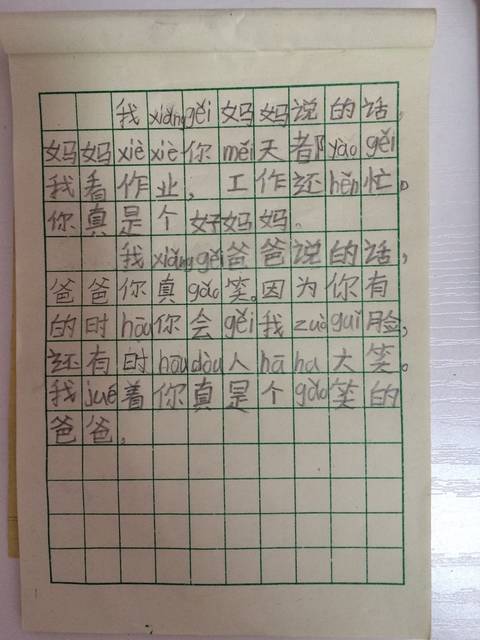 我xiǎnggěi妈妈说的话，
妈妈xièxiè你měi天都yàogěi
我看作业，工作还hěn忙。
你真是个好妈妈。
我xiǎnggěi爸爸说的话，
爸爸你真gǎo笑。因为你有
的时hōu你会gěi我zuòguǐ脸，
还有时hōudòu人hāha大笑。
我jué着你真是个gǎo笑的
爸爸。